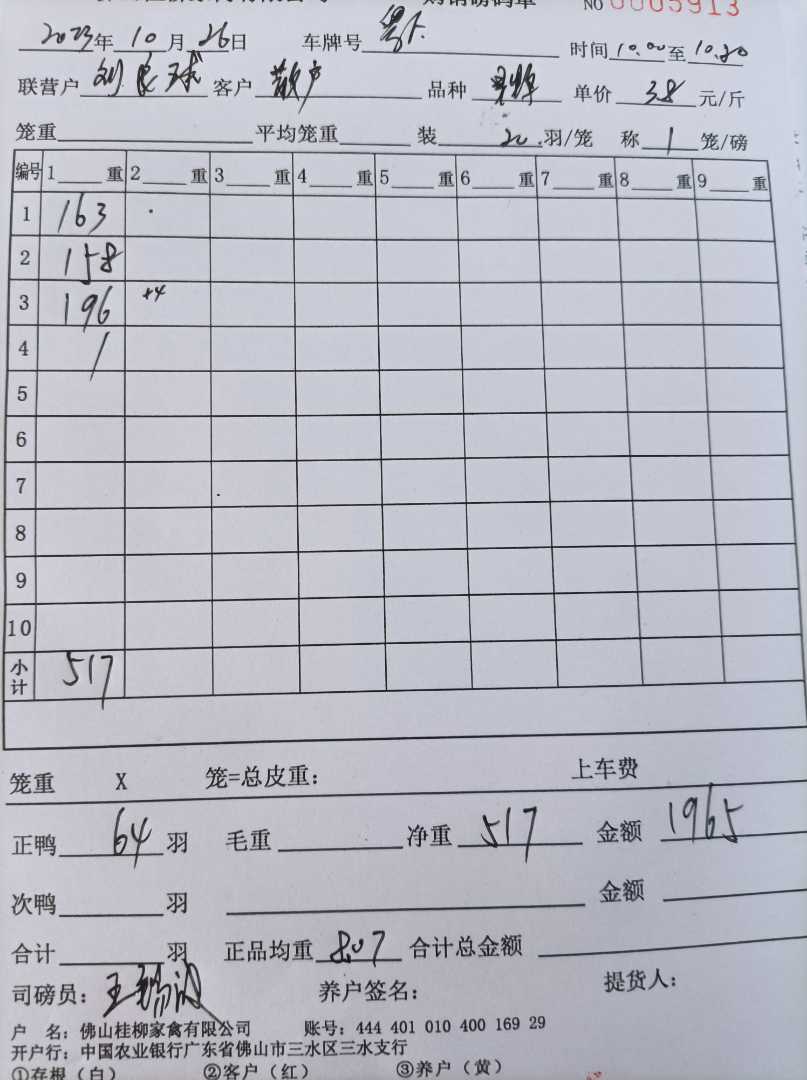 NO 0005913
2023年 10 月 26日 车牌号 时间 10.00 至 10.20
联营户 刘 球 客户 散户 品种 单价 3.8 元/斤
笼重 平均笼重 装 20 .羽/笼 称 1 笼/磅
编号 1 重 2 重 3 重 4 重 5 重 6 重 7 重 8 重 9 重
1 163
2 158
3 196 +4
4 /
5
6
7
8
9
10
小计 517
笼重 X 笼=总皮重: 上车费
正鸭 64 羽 毛重 净重 517 金额 1965
次鸭 羽 金额
合计 羽 正品均重 8.07 合计总金额
司磅员: 王 养户签名: 提货人:
户 名: 佛山桂柳家禽有限公司 账号: 444 401 010 400 169 29
开户行: 中国农业银行广东省佛山市三水区三水支行
①存根（白） ②客户（红） ③养户（黄）